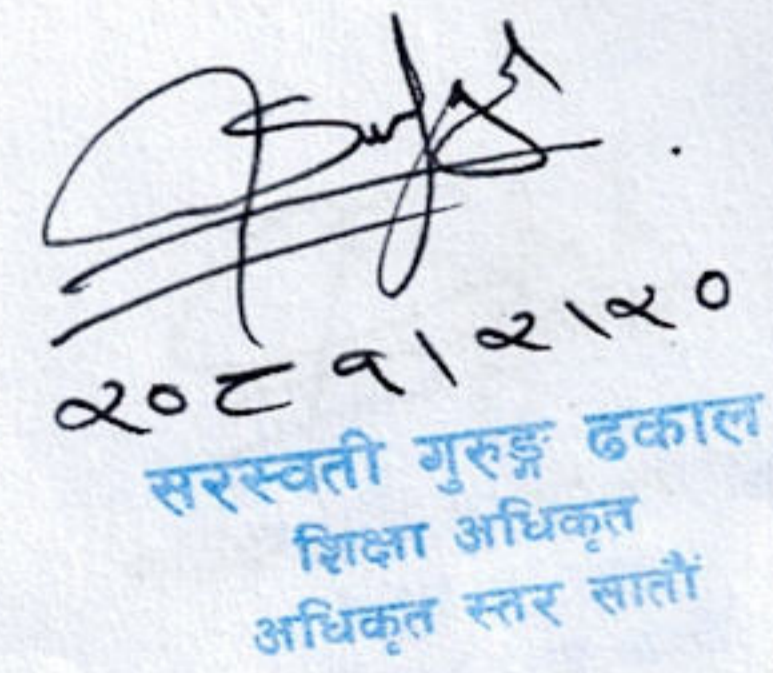 २०८१।२।२०
सरस्वती गुरुङ्ग ढकाल
शिक्षा अधिकृत
अधिकृत स्तर सातौं